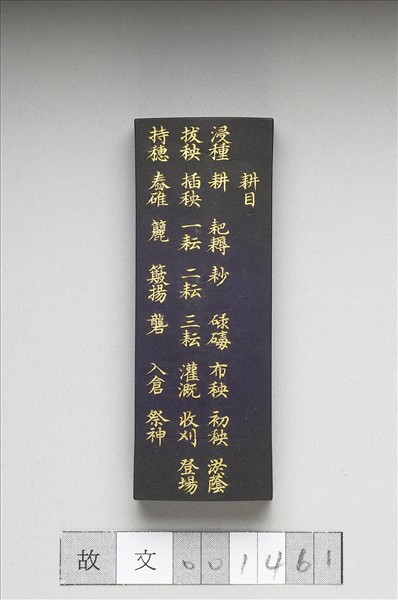 耕目
浸種 耕 耙耨 耖 碌碡 布秧 初秧 淤蔭
拔秧 插秧 一耘 二耘 三耘 灌溉 收刈 登場
持穗 舂碓 簏 簸揚 礱 入倉 祭神
故文001461